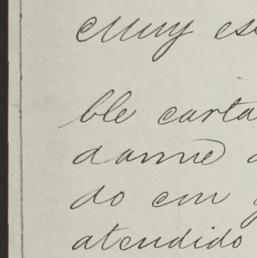 Muy es
ble carta
darme
do em
atendido